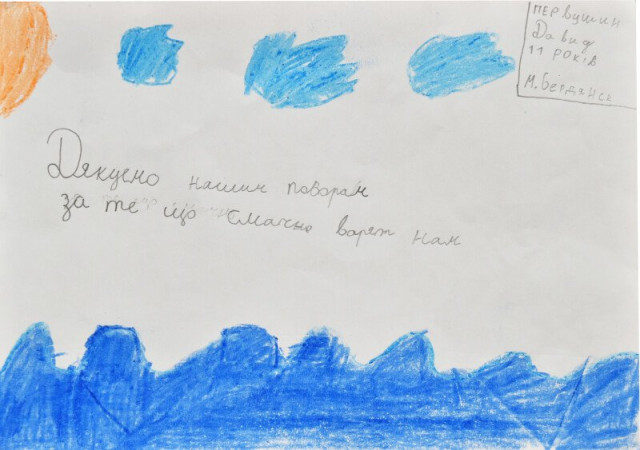 Первушин
Давид
11 років
М. Бердянськ
Дякуємо нашим поварам
за те що смачно варят нам